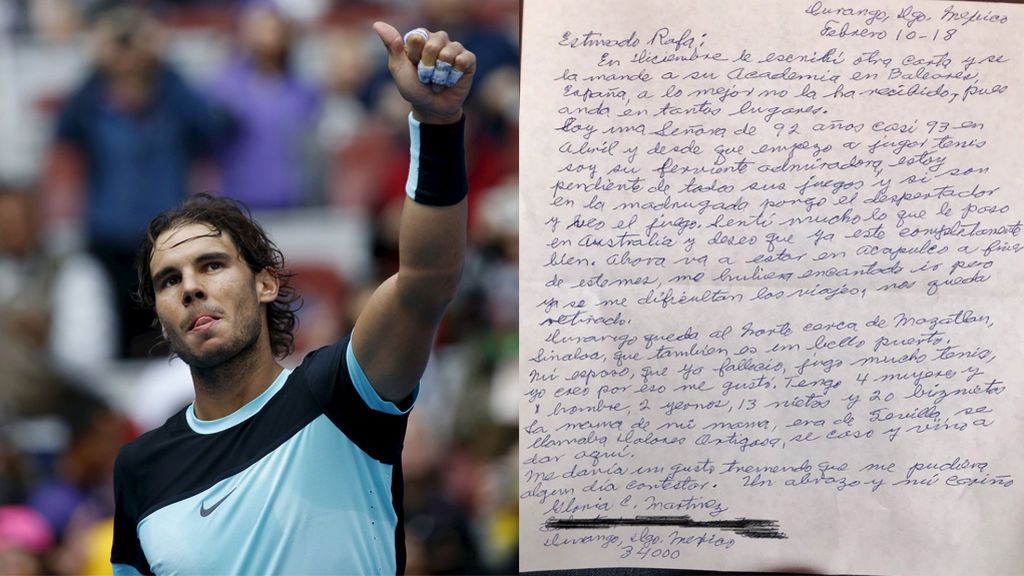 Durango, Dgo. Mexico
Febrero 10-18
Estimado Rafa:
En Diciembre le escribí otra carta y se
la mande a su Academia en Baleares,
España, a lo mejor no la ha recibido, pues
anda en tantos lugares.
Soy una Señora de 92 años casi 93 en
Abril y desde que empezo a jugar tenis
soy su ferviente admiradora, estoy
pendiente de todos sus juegos y si son
en la madrugada pongo el despertador
y veo el juego. Sentí mucho lo que le paso
en Australia y deseo que ya este completamente
bien. Ahora va a estar en Acapulco a fines
de este mes, me hubiera encantado ir pero
ya se me dificultan los viajes, nos queda
retirado.
Durango queda al Norte cerca de Mazatlan,
Sinaloa, que tambien es un bello puerto.
Mi esposo, que ya fallecio, jugo mucho tenis,
yo creo por eso me gustó. Tengo 4 mujeres y
1 hombre, 2 yernos, 13 nietos y 20 biznietos
La mamá de mi mama, era de Sevilla, se
llamaba Dolores Artigosa, se caso y vino a
dar aquí.
Me daría un gusto tremendo que me pudiera
algun día contestar. Un abrazo y mi cariño
Gloria C. Martinez
Durango, Dgo. Mexico
34000